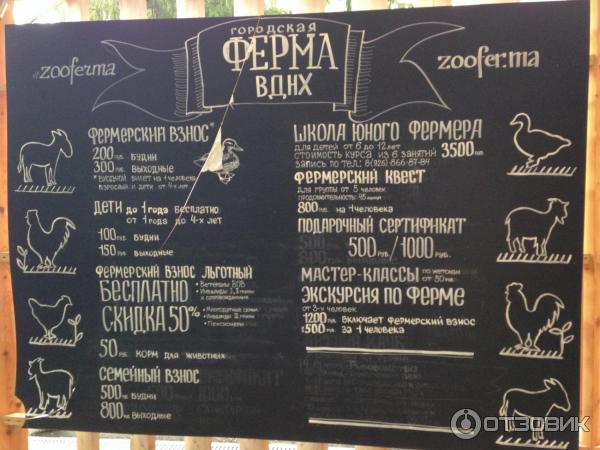 zooferma
ГОРОДСКАЯ
ФЕРМА
ВДНХ
zoofer.ma
ФЕРМЕРСКИЙ ВЗНОС*
200 РУБ. БУДНИ
300 РУБ. ВЫХОДНЫЕ
* ВХОДНОЙ БИЛЕТ НА 1 ЧЕЛОВЕКА
ВЗРОСЛЫЙ И ДЕТИ ОТ 4-Х ЛЕТ
ДЕТИ ДО 1 ГОДА БЕСПЛАТНО
ОТ 1 ГОДА ДО 4-Х ЛЕТ
100 РУБ. БУДНИ
150 РУБ. ВЫХОДНЫЕ
ФЕРМЕРСКИЙ ВЗНОС ЛЬГОТНЫЙ
БЕСПЛАТНО
• ВЕТЕРАНЫ ВОВ
• ИНВАЛИДЫ
СКИДКА 50%
• МНОГОДЕТНЫЕ СЕМЬИ
• ИНВАЛИДЫ
• ПЕНСИОНЕРЫ
50 РУБ. КОРМ ДЛЯ ЖИВОТНЫХ
СЕМЕЙНЫЙ ВЗНОС
500 РУБ. БУДНИ
800 РУБ. ВЫХОДНЫЕ
ШКОЛА ЮНОГО ФЕРМЕРА
ДЛЯ ДЕТЕЙ ОТ 6 ДО 12 ЛЕТ
СТОИМОСТЬ КУРСА ИЗ 6 ЗАНЯТИЙ 3500 РУБ.
ЗАПИСЬ ПО ТЕЛ.: 8(926)-866-87-84
ФЕРМЕРСКИЙ КВЕСТ
ДЛЯ ГРУППЫ ОТ 5 ЧЕЛОВЕК
ПРОДОЛЖИТЕЛЬНОСТЬ 45 МИНУТ
800 РУБ. НА 1 ЧЕЛОВЕКА
ПОДАРОЧНЫЙ СЕРТИФИКАТ
500 РУБ. / 1000 РУБ.
МАСТЕР-КЛАССЫ
ОТ 50 РУБ.
ЭКСКУРСИЯ ПО ФЕРМЕ
ОТ 3-Х ЧЕЛОВЕК
1200 РУБ. ВКЛЮЧАЕТ ФЕРМЕРСКИЙ ВЗНОС
500 РУБ. ЗА 1 ЧЕЛОВЕКА
ОТЗОВИК